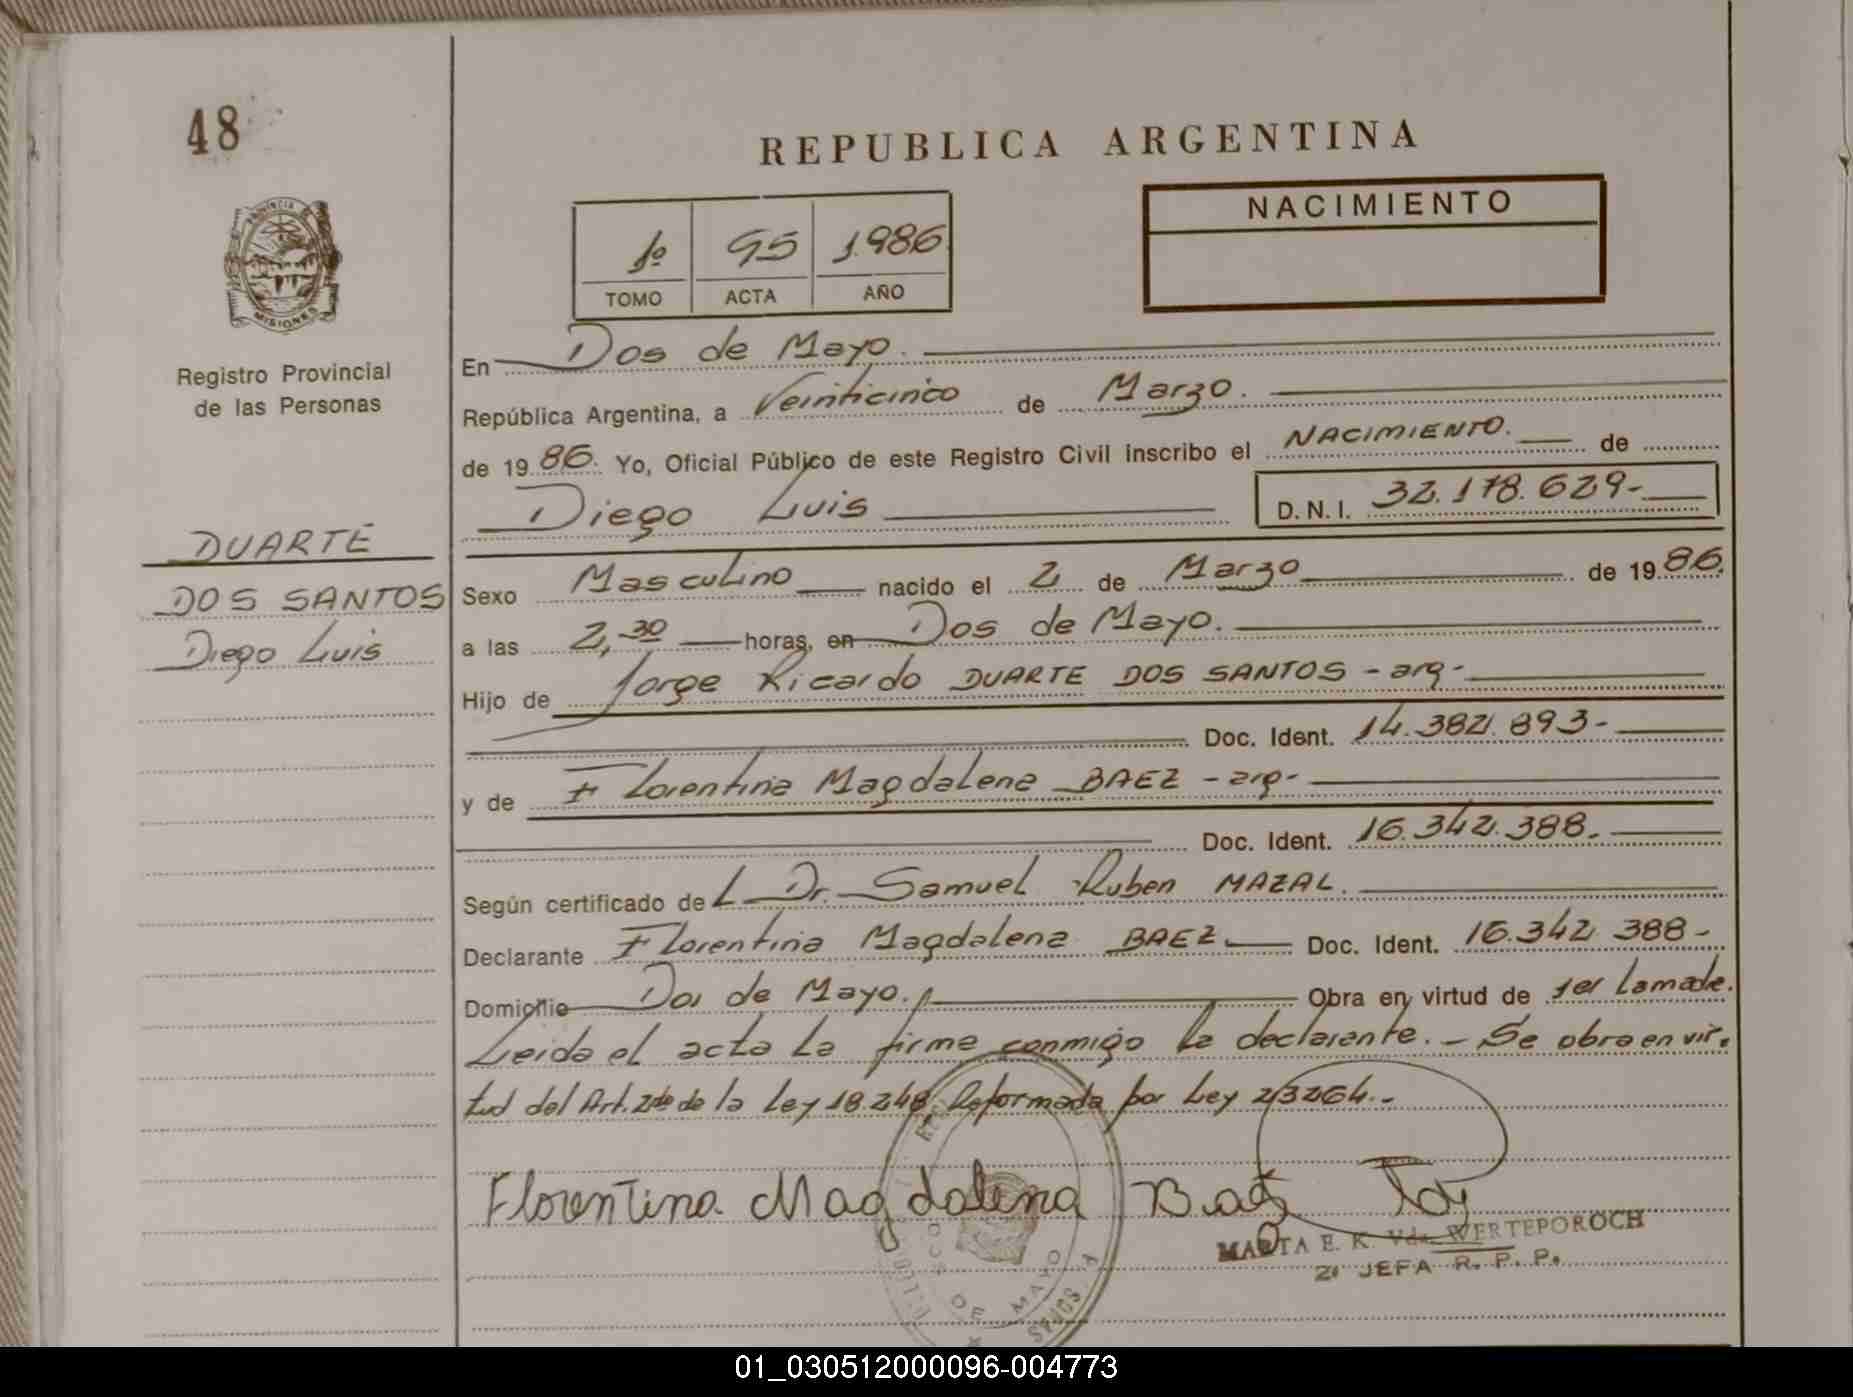 48
REPUBLICA ARGENTINA
NACIMIENTO
1º 95 1.986
TOMO ACTA AÑO
PROVINCIA DE
MISIONES
Registro Provincial
de las Personas
DUARTE
DOS SANTOS
Diego Luis
En Dos de Mayo.
República Argentina, a Veinticinco de Marzo.
de 1986. Yo, Oficial Público de este Registro Civil inscribo el NACIMIENTO. de
Diego Luis D. N. I. 32.178.629-
Sexo Masculino nacido el 2 de Marzo de 1986.
a las 2,30 horas, en Dos de Mayo.
Hijo de Jorge Ricardo DUARTE DOS SANTOS - arg-
Doc. Ident. 14.382.893-
y de Florentina Magdalena BAEZ - arg-
Doc. Ident. 16.342.388.
Según certificado del Dr. Samuel Ruben MAZAL.
Declarante Florentina Magdalena BAEZ. Doc. Ident. 16.342.388-
Domicilio Dos de Mayo. Obra en virtud de ser la madre.
Leida el acta la firma conmigo la declarante.- Se obra en vir-
tud del Art. 2do de la Ley 18.248 Reformada por Ley 23264.-
Florentina Magdalena Baez
MARTA E. K. Vda. WERTEPOROCH
JEFA R. P. P.
DOS DE MAYO
01_030512000096-004773